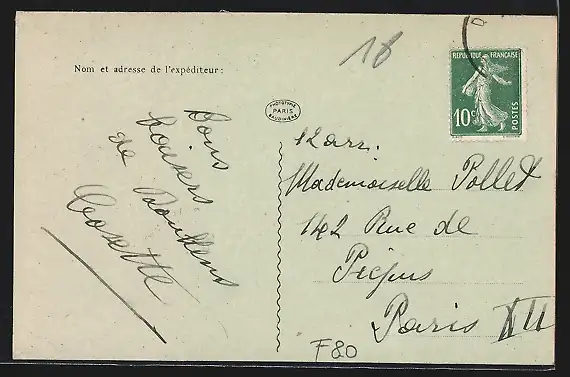 18
RÉPUBLIQUE FRANÇAISE
10c
POSTES
Nom et adresse de l'expéditeur:
PHOTOTYPIE
PARIS
BAUDINIÈRE
Bons
baisers
de Doullens
Cosette
12 arr.
Mademoiselle Pollet
142 Rue de
Picpus
Paris XII
F80